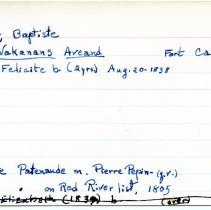 Baptiste
Wakanans Areand Fort Ca
Felicite b (2yrs) Aug. 20-1838
Patenaude m. Pierre Pepin-(g.v.)
" on Red River list, 1805
Elizabeth (1839) b